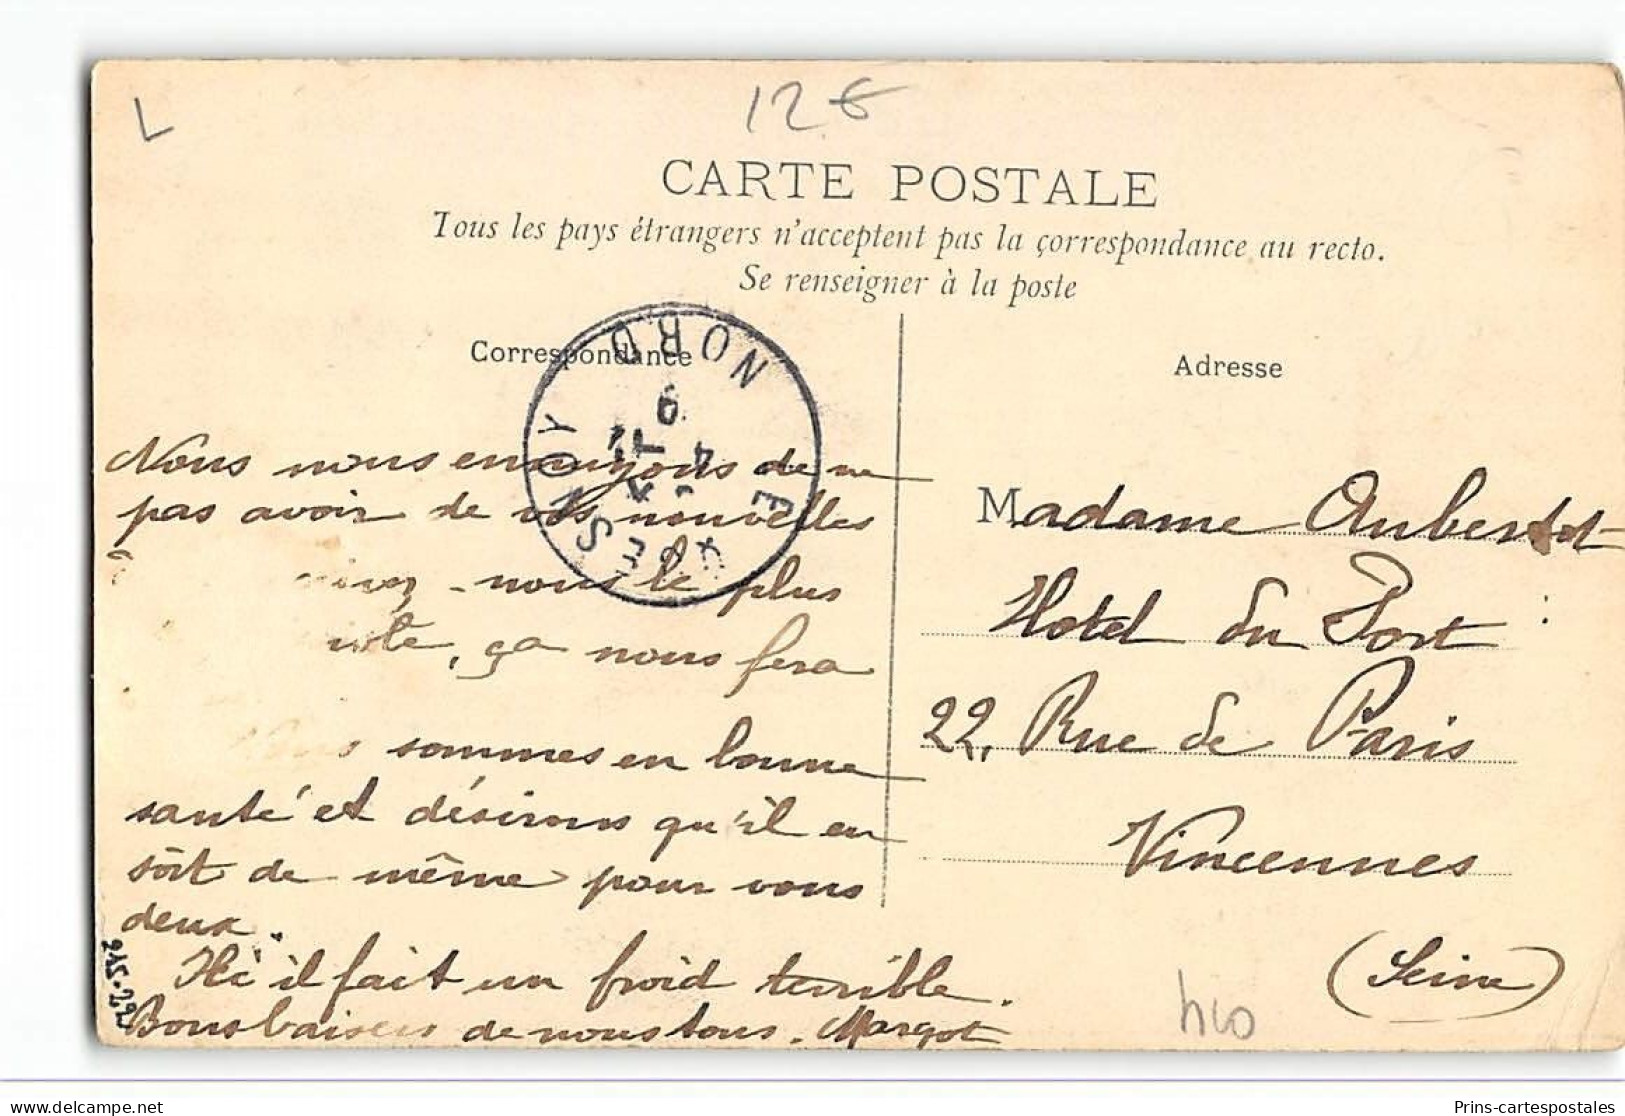 L
12 €
CARTE POSTALE
Tous les pays étrangers n'acceptent pas la correspondance au recto.
Se renseigner à la poste
Correspondance
Adresse
LE QUESNOY NORD
Nous nous ennuyons de ne
pas avoir de vos nouvelles
nous le plus
ça nous fera
sommes en bonne
santé et désirons qu'il en
soit de même pour vous
deux.
Ici il fait un froid terrible.
Bons baisers de nous tous. Margot
Madame Aubertot
Hotel du Port
22, Rue de Paris
Vincennes
(Seine)
delcampe.net
Prins-cartespostales